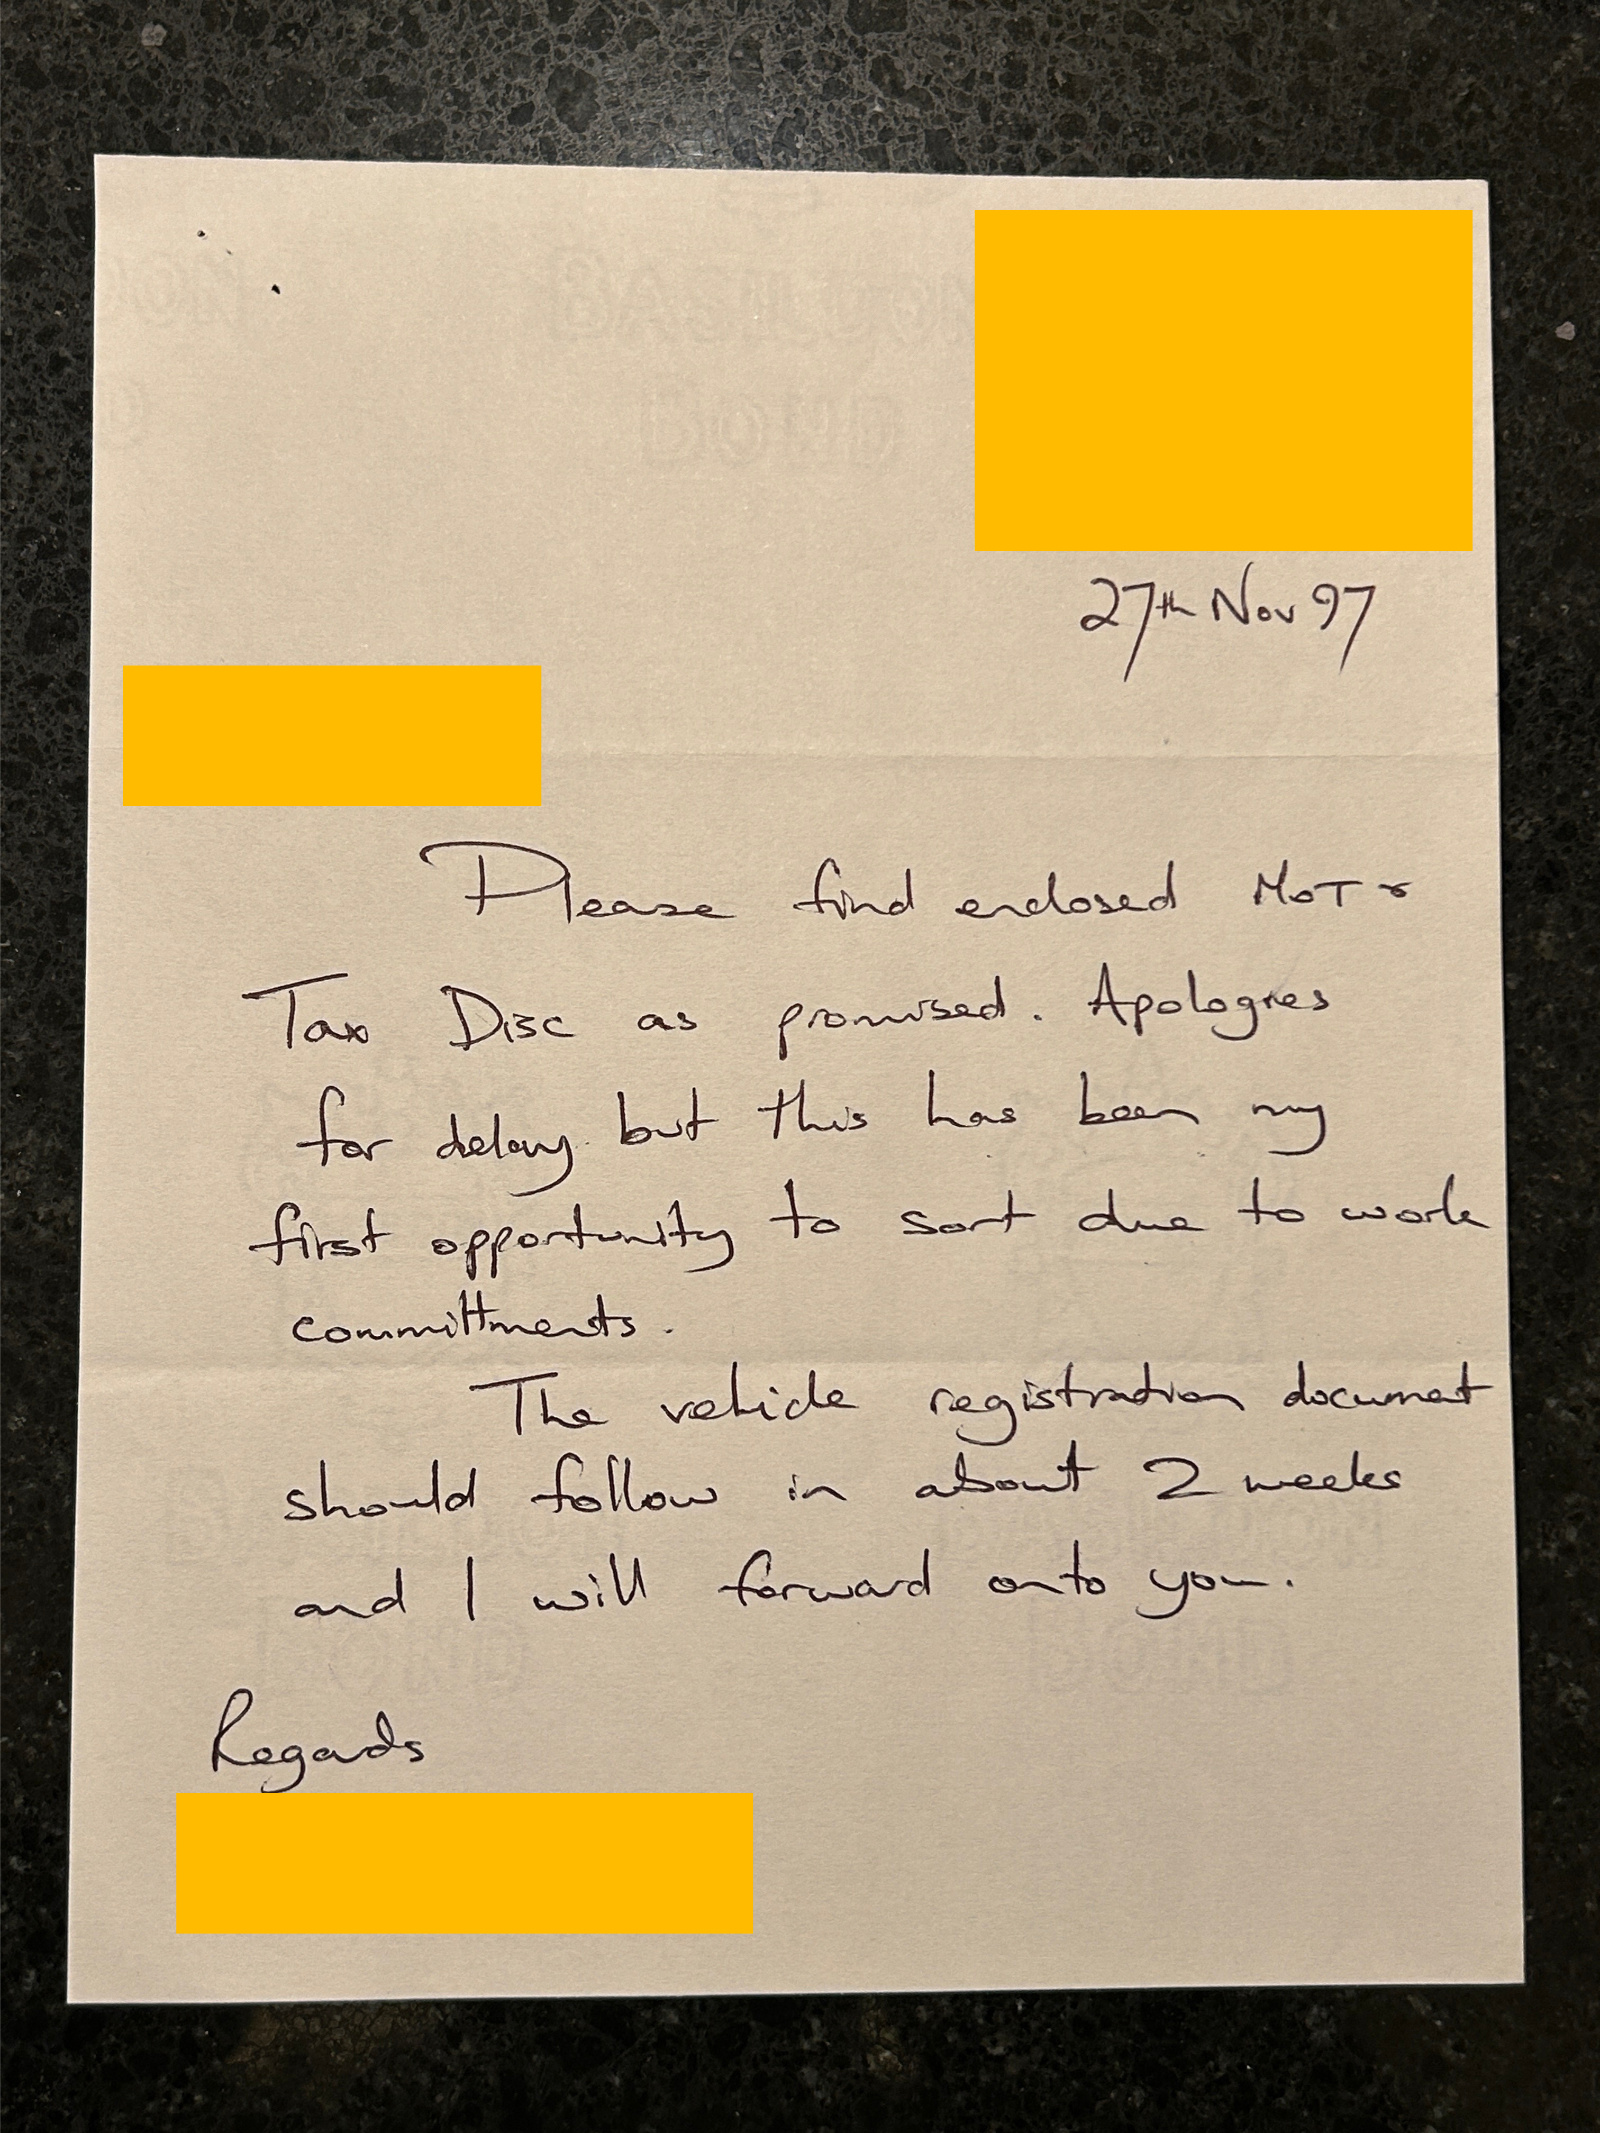 27th Nov 97
Please find enclosed MOT &
Tax Disc as promised. Apologies
for delay but this has been my
first opportunity to sort due to work
committments.
The vehicle registration document
should follow in about 2 weeks
and I will forward onto you.
Regards